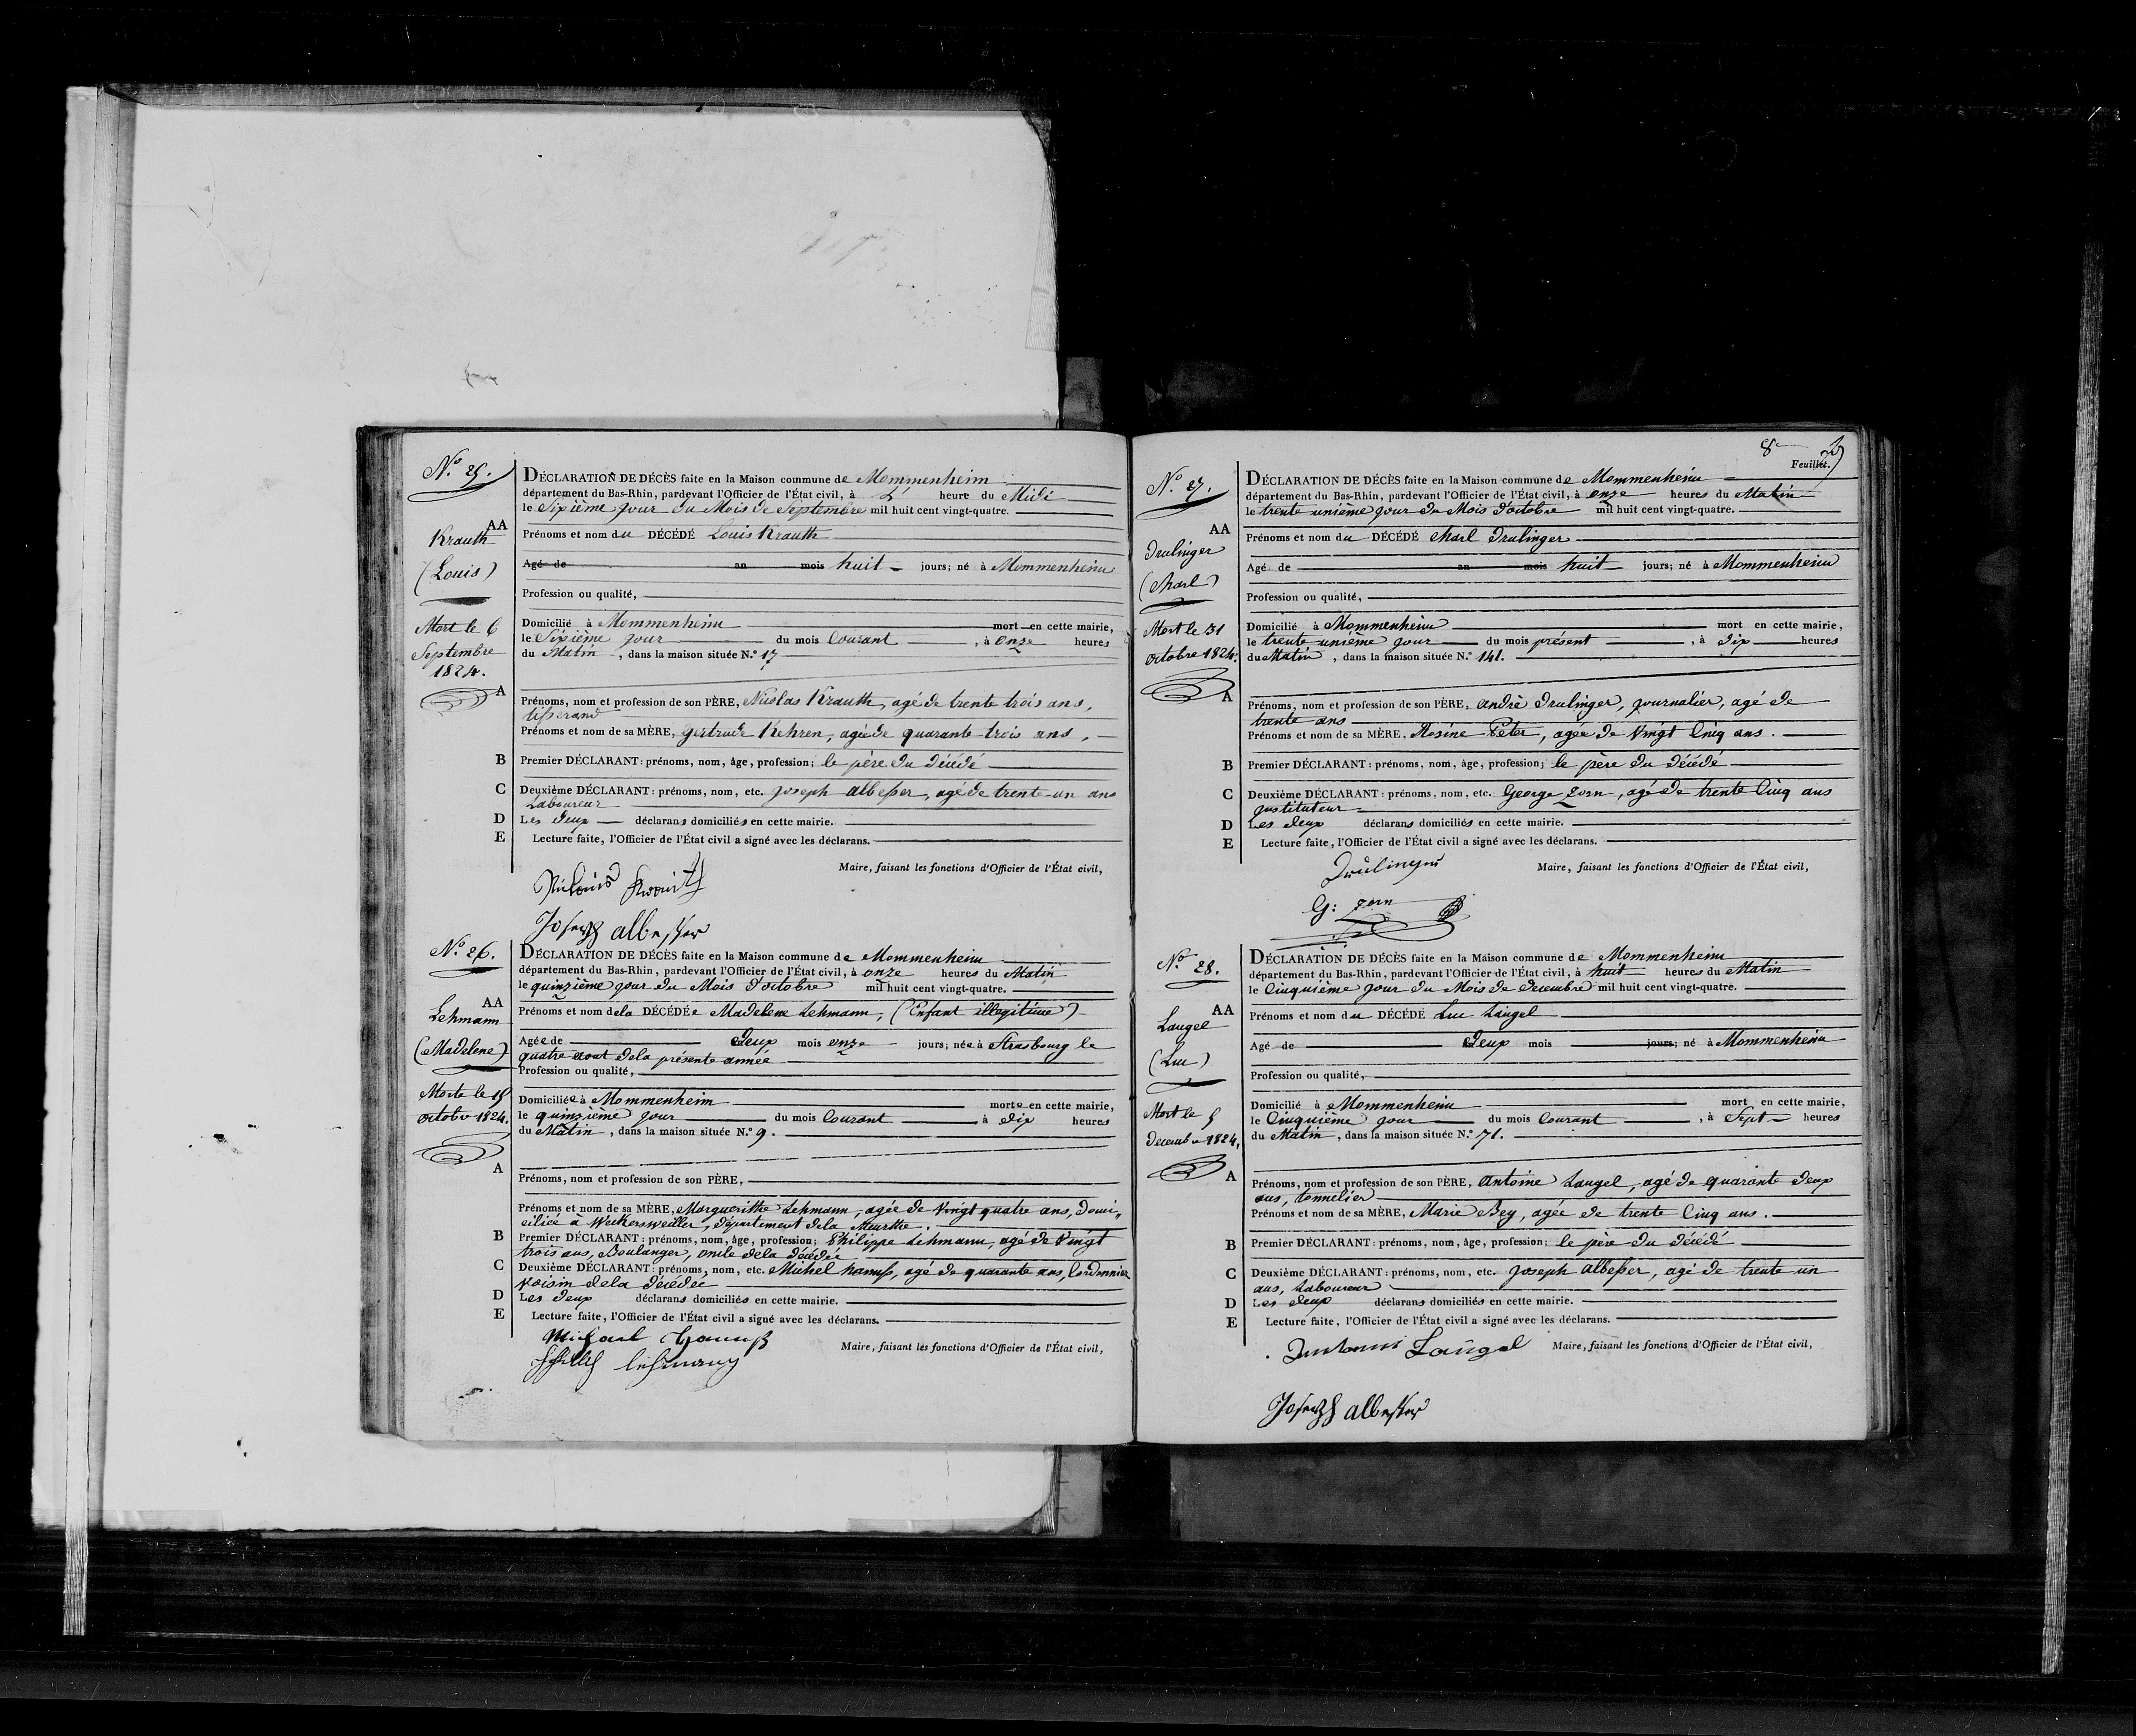 N.° 25.
DÉCLARATION DE DÉCÈS faite en la Maison commune de Mommenheim
département du Bas-Rhin, pardevant l'Officier de l'État civil, à L' heure du Midi
le Sixième jour du Mois de Septembre mil huit cent vingt-quatre.
AA
Krauth
(Louis)
Mort le 6
Septembre
1824.
Prénoms et nom du DÉCÉDÉ Louis Krauth
Agé de an mois huit jours; né à Mommenheim
Profession ou qualité,
Domicilié à Mommenheim mort en cette mairie,
le Sixième jour du mois Courant, à Onze heures
du Matin, dans la maison située N.° 17
A
Prénoms, nom et profession de son PÈRE, Nicolas Krauth, agé de trente trois ans,
tisserand
Prénoms et nom de sa MÈRE, Gertrude Kehren, agée de quarante trois ans,
B Premier DÉCLARANT: prénoms, nom, âge, profession; le père du décédé
C Deuxième DÉCLARANT: prénoms, nom, etc. Joseph Albesser, agé de trente-un ans
Laboureur
D Les deux déclarans domiciliés en cette mairie.
E Lecture faite, l'Officier de l'État civil a signé avec les déclarans.
Maire, faisant les fonctions d'Officier de l'État civil,
Joseph albesser
N.° 26.
DÉCLARATION DE DÉCÈS faite en la Maison commune de Mommenheim
département du Bas-Rhin, pardevant l'Officier de l'État civil, à onze heures du Matin
le quinzième jour du Mois d'octobre mil huit cent vingt-quatre.
AA
Lehmann
(Madelene)
Morte le 15
octobre 1824.
Prénoms et nom dela DÉCÉDÉe Madelene Lehmann, (Enfant illegitime)
Agée de deux mois onze jours; née à Strasbourg le
quatre aout dela présente année
Profession ou qualité,
Domiciliée à Mommenheim morte en cette mairie,
le quinzième jour du mois Courant à dix heures
du Matin, dans la maison située N.° 9.
A
Prénoms, nom et profession de son PÈRE,
Prénoms et nom de sa MÈRE, Margueritte Lehmann, agée de Vingt quatre ans, domi„
ciliée à Weckersweiller, département dela Meurthe.
B Premier DÉCLARANT: prénoms, nom, âge, profession; Philippe Lehmann, agé de Vingt
trois ans, Boulanger, oncle dela décédée
C Deuxième DÉCLARANT: prénoms, nom, etc. Michel hamss, agé de quarante ans, Cordonnier
voisin dela décédée
D Les deux déclarans domiciliés en cette mairie.
E Lecture faite, l'Officier de l'État civil a signé avec les déclarans.
Maire, faisant les fonctions d'Officier de l'État civil,
8
Feuillet.
N.° 27.
DÉCLARATION DE DÉCÈS faite en la Maison commune de Mommenheim
département du Bas-Rhin, pardevant l'Officier de l'État civil, à onze heures du Matin
le trente unième jour du Mois d'octobre mil huit cent vingt-quatre.
AA
Drulinger
(Charl)
Mort le 31
octobre 1824.
Prénoms et nom du DÉCÉDÉ Charl Drulinger
Agé de an mois huit jours; né à Mommenheim
Profession ou qualité,
Domicilié à Mommenheim mort en cette mairie,
le trente unième jour du mois présent, à dix heures
du Matin, dans la maison située N.° 141.
A
Prénoms, nom et profession de son PÈRE, André Drulinger, journalier, agé de
trente ans
Prénoms et nom de sa MÈRE, Rosine Peter, agée de Vingt Cinq ans.
B Premier DÉCLARANT: prénoms, nom, âge, profession; le père du décédé
C Deuxième DÉCLARANT: prénoms, nom, etc. George Zorn, agé de trente Cinq ans
Instituteur
D Les deux déclarans domiciliés en cette mairie.
E Lecture faite, l'Officier de l'État civil a signé avec les déclarans.
Maire, faisant les fonctions d'Officier de l'État civil,
G: zorn
N.° 28.
DÉCLARATION DE DÉCÈS faite en la Maison commune de Mommenheim
département du Bas-Rhin, pardevant l'Officier de l'État civil, à huit heures du Matin
le Cinquième jour du Mois de Decembre mil huit cent vingt-quatre.
AA
Langel
(Luc)
Mort le 5
Decembre 1824.
Prénoms et nom du DÉCÉDÉ Luc Langel
Agé de deux mois jours; né à Mommenheim
Profession ou qualité,
Domicilié à Mommenheim mort en cette mairie,
le Cinquième jour du mois Courant, à Sept heures
du Matin, dans la maison située N.° 71.
A
Prénoms, nom et profession de son PÈRE, Antoine Langel, agé de quarante deux
ans, tonnelier
Prénoms et nom de sa MÈRE, Marie Bey, agée de trente Cinq ans.
B Premier DÉCLARANT: prénoms, nom, âge, profession; le père du décédé
C Deuxième DÉCLARANT: prénoms, nom, etc. Joseph Albesser, agé de trente un
ans, Laboureur
D Les deux déclarans domiciliés en cette mairie.
E Lecture faite, l'Officier de l'État civil a signé avec les déclarans.
Maire, faisant les fonctions d'Officier de l'État civil,
Joseph albesser